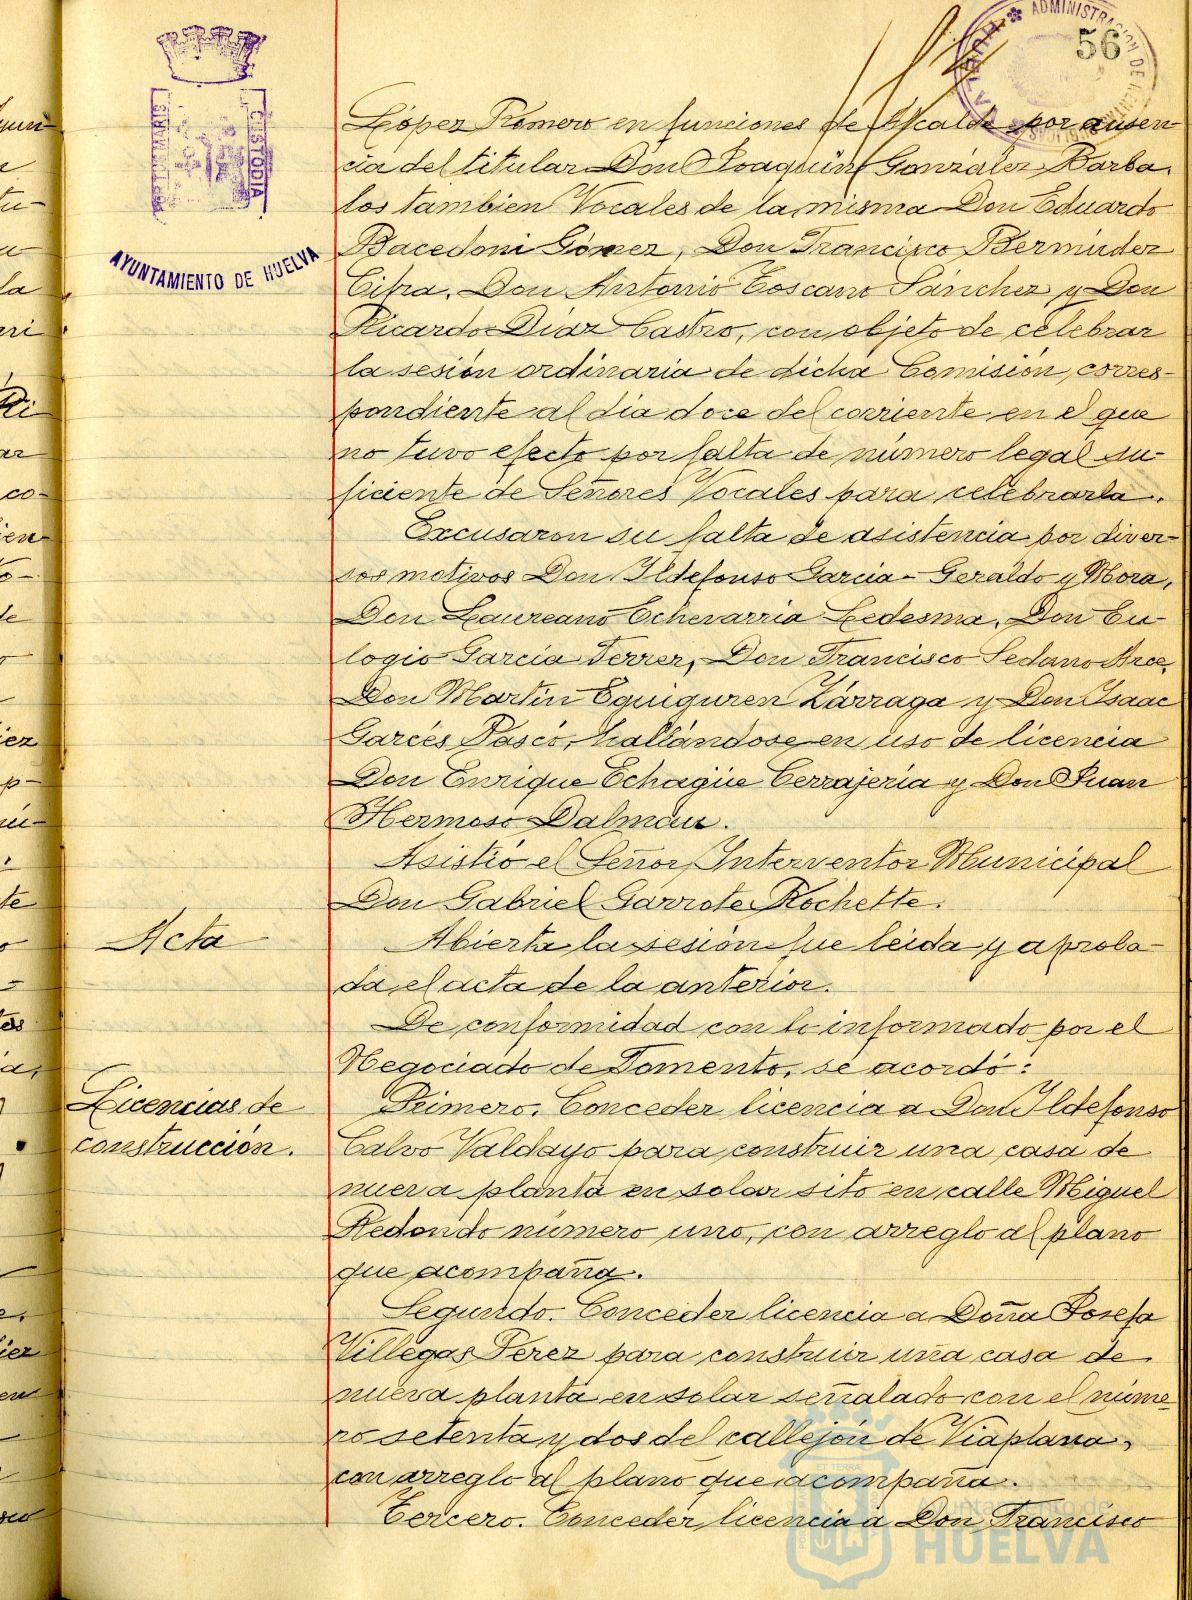 56
ADMINISTRACION DE
HUELVA
PORTUS MARIS
CUSTODIA
AYUNTAMIENTO DE HUELVA
López Romero en funciones de Alcalde por ausen-
cia del titular Don Joaquín González Barba,
los tambien Vocales de la misma Don Eduardo
Bacedoni Gómez, Don Francisco Bermúdez
Cifra, Don Antonio Toscano Sánchez y Don
Ricardo Díaz Castro, con objeto de celebrar
la sesión ordinaria de dicha Comisión, corres-
pondiente al día doce del corriente en el que
no tuvo efecto por falta de número legal su-
ficiente de Señores Vocales para celebrarla.
Excusaron su falta de asistencia por diver-
sos motivos Don Ildefonso García-Geraldo y Mora,
Don Laureano Echevarria Ledesma, Don Eu-
logio García Ferrer, Don Francisco Sedano Arce,
Don Martín Eguiguren Zárraga y Don Isaac
Garcés Pascó, hallándose en uso de licencia
Don Enrique Echagüe Cerrajería y Don Juan
Hermoso Dalmau.
Asistió el Señor Interventor Municipal
Don Gabriel Garrote Rochette.
Acta
Abierta la sesión fue leida y aproba-
da el acta de la anterior.
De conformidad con lo informado por el
Negociado de Fomento, se acordó:
Licencias de
construcción.
Primero. Conceder licencia a Don Ildefonso
Calvo Valdayo para construir una casa de
nueva planta en solar sito en calle Miguel
Redondo número uno, con arreglo al plano
que acompaña.
Segundo. Conceder licencia a Doña Josefa
Villegas Pérez para construir una casa de
nueva planta en solar señalado con el núme-
ro setenta y dos del callejón de Viaplana,
con arreglo al plano que acompaña.
Tercero. Conceder licencia a Don Francisco
Ayuntamiento de
HUELVA